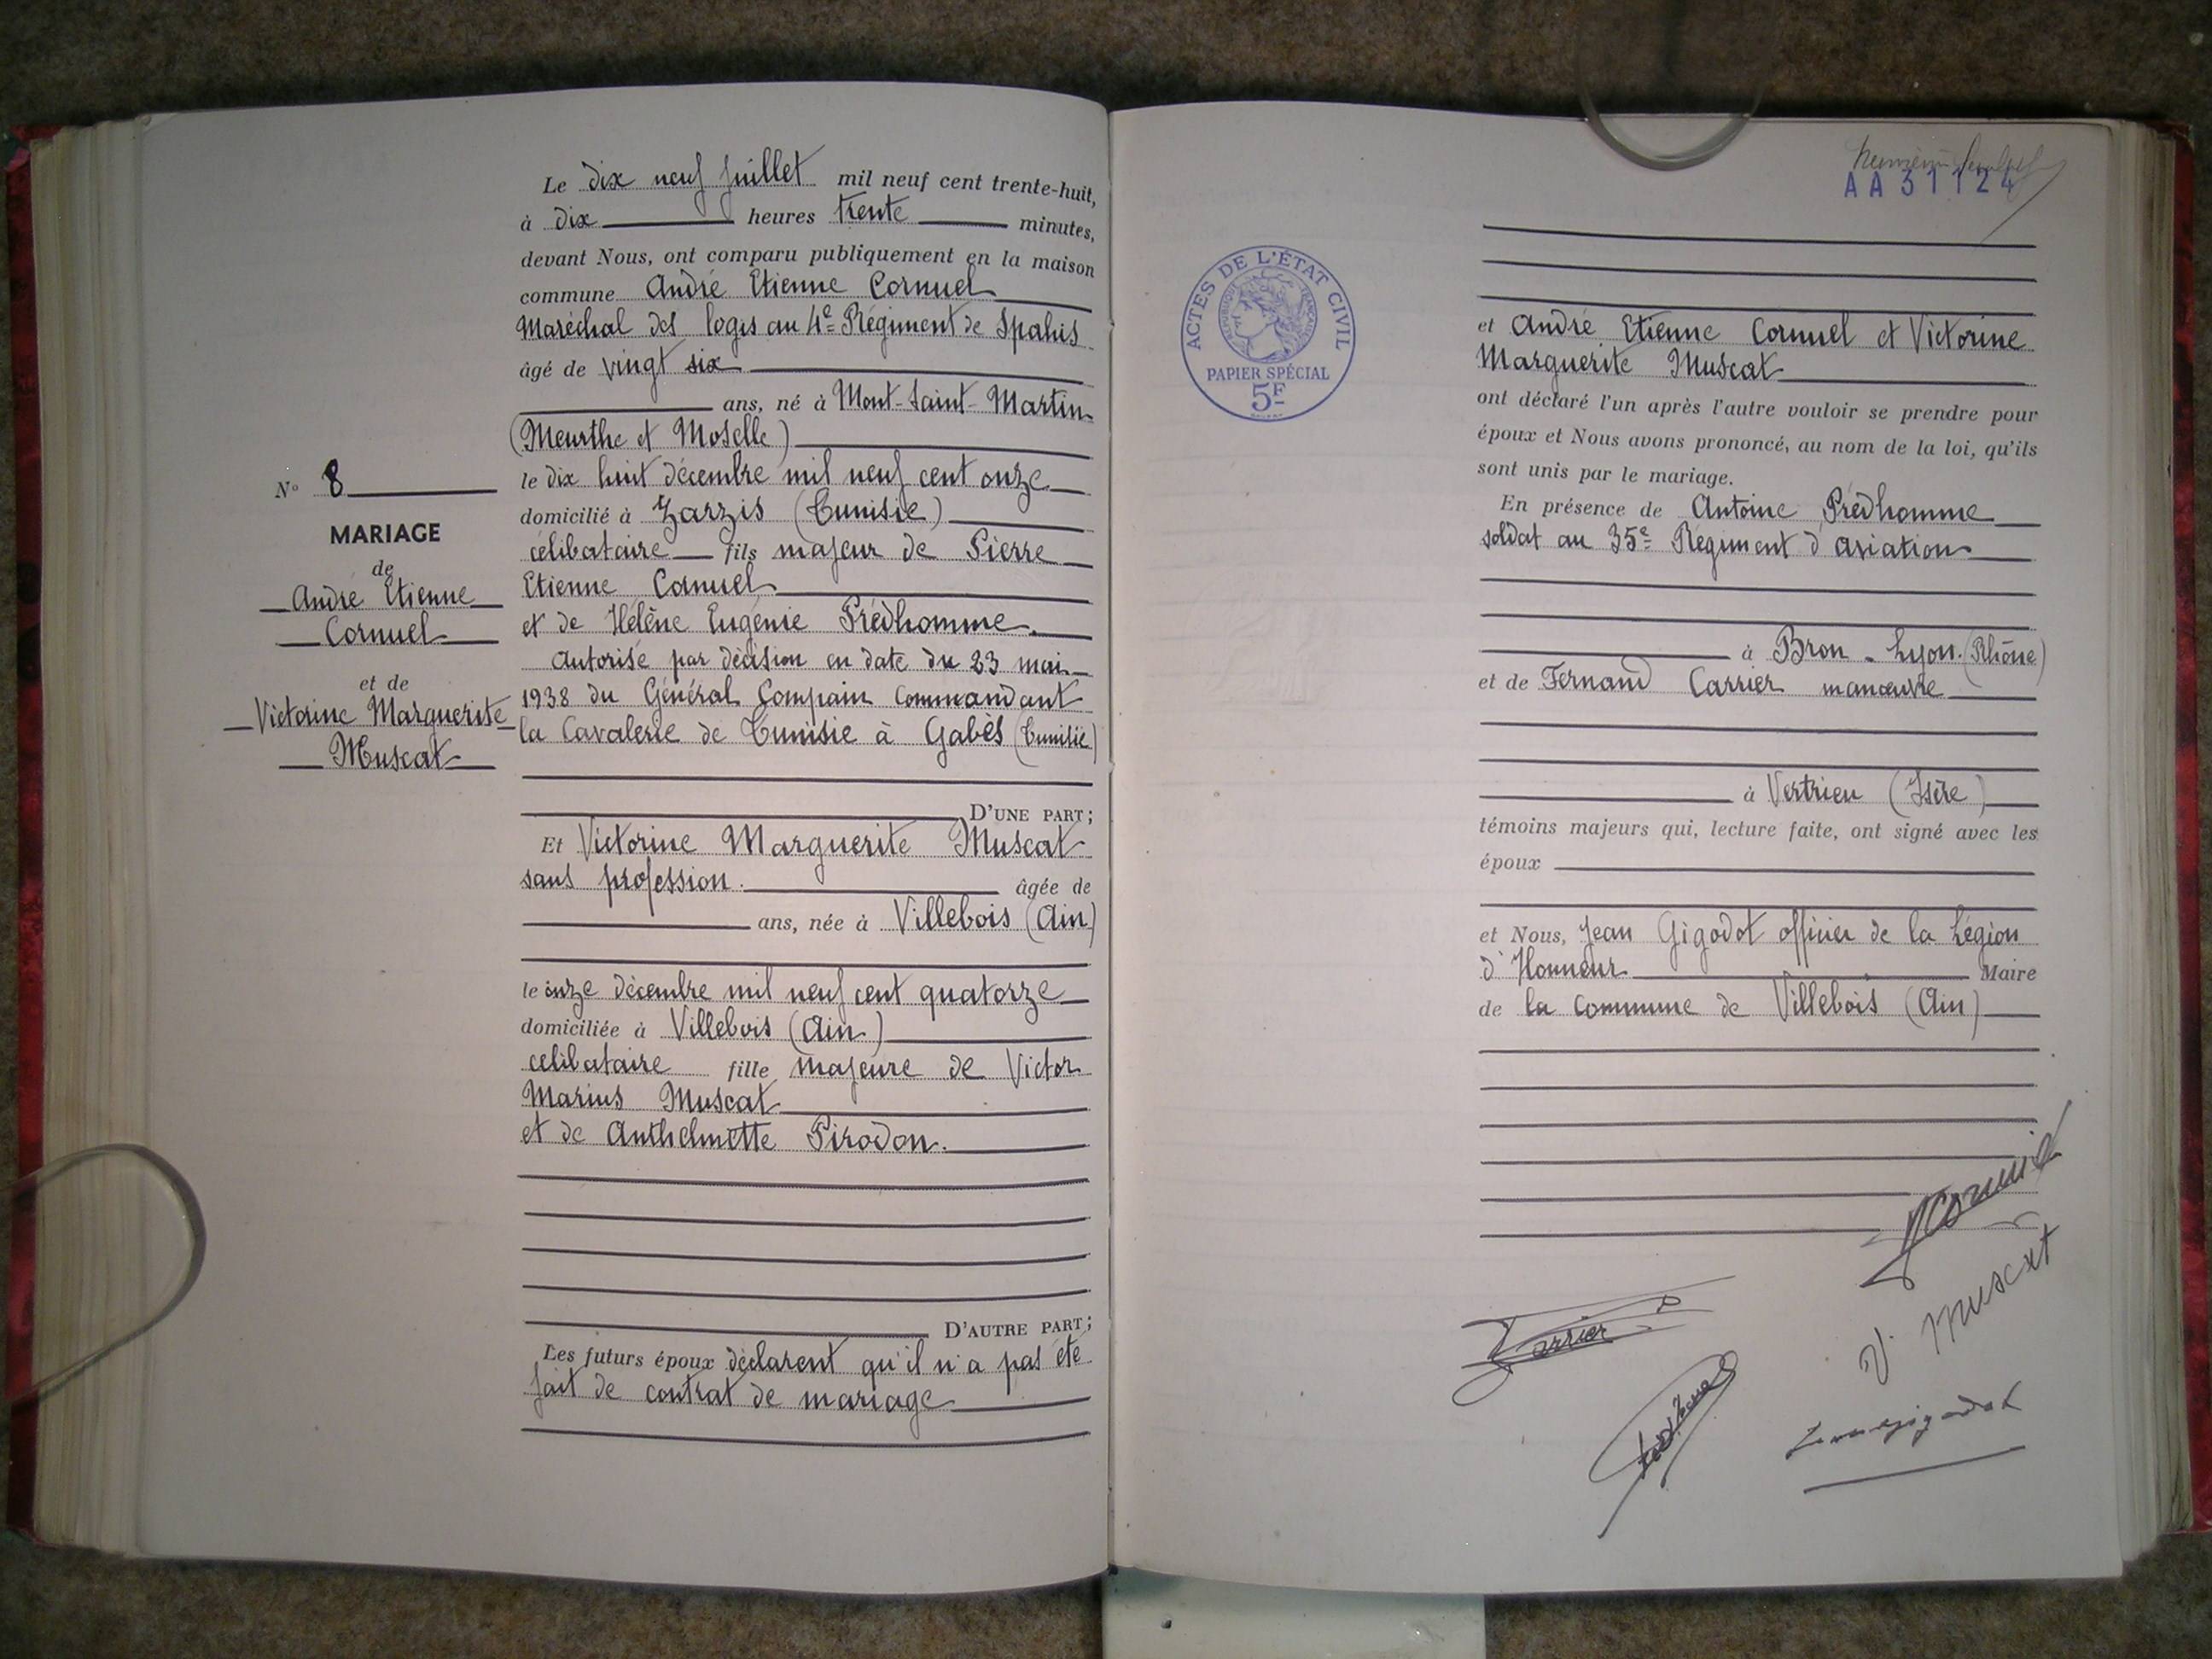 N° 8
MARIAGE
de
André Etienne
Cornuel
et de
Victorine Marguerite
Muscat
Le dix neuf Juillet mil neuf cent trente-huit,
à dix heures trente minutes,
devant Nous, ont comparu publiquement en la maison
commune André Etienne Cornuel
Maréchal des logis au 4e Régiment de Spahis
âgé de vingt six
ans, né à Mont-Saint-Martin
(Meurthe et Moselle)
le dix huit décembre mil neuf cent onze
domicilié à Zarzis (Tunisie)
célibataire fils majeur de Pierre
Etienne Cornuel
et de Hélène Eugénie Prédhomme.
Autorisé par décision en date du 23 mai
1938 du Général Compain Commandant
la Cavalerie de Tunisie à Gabès (Tunisie)
D'UNE PART;
Et Victorine Marguerite Muscat
sans profession. âgée de
ans, née à Villebois (Ain)
le onze décembre mil neuf cent quatorze
domiciliée à Villebois (Ain)
célibataire fille majeure de Victor
Marius Muscat
et de Anthelmette Pirodon.
D'AUTRE PART;
Les futurs époux déclarent qu'il n'a pas été
fait de contrat de mariage
AA 31124
ACTES DE L'ÉTAT CIVIL
RÉPUBLIQUE FRANÇAISE
PAPIER SPÉCIAL
5F
et André Etienne Cornuel et Victorine
Marguerite Muscat
ont déclaré l'un après l'autre vouloir se prendre pour
époux et Nous avons prononcé, au nom de la loi, qu'ils
sont unis par le mariage.
En présence de Antoine Prédhomme
soldat au 35e Régiment d'aviation
à Bron - Lyon. (Rhône)
et de Fernand Carrier manœuvre
à Vertrieu (Isère)
témoins majeurs qui, lecture faite, ont signé avec les
époux
et Nous, Jean Gigodot officier de la Légion
d'Honneur Maire
de la Commune de Villebois (Ain)
Cornuel
V. Muscat
Carrier
Jean Gigodot